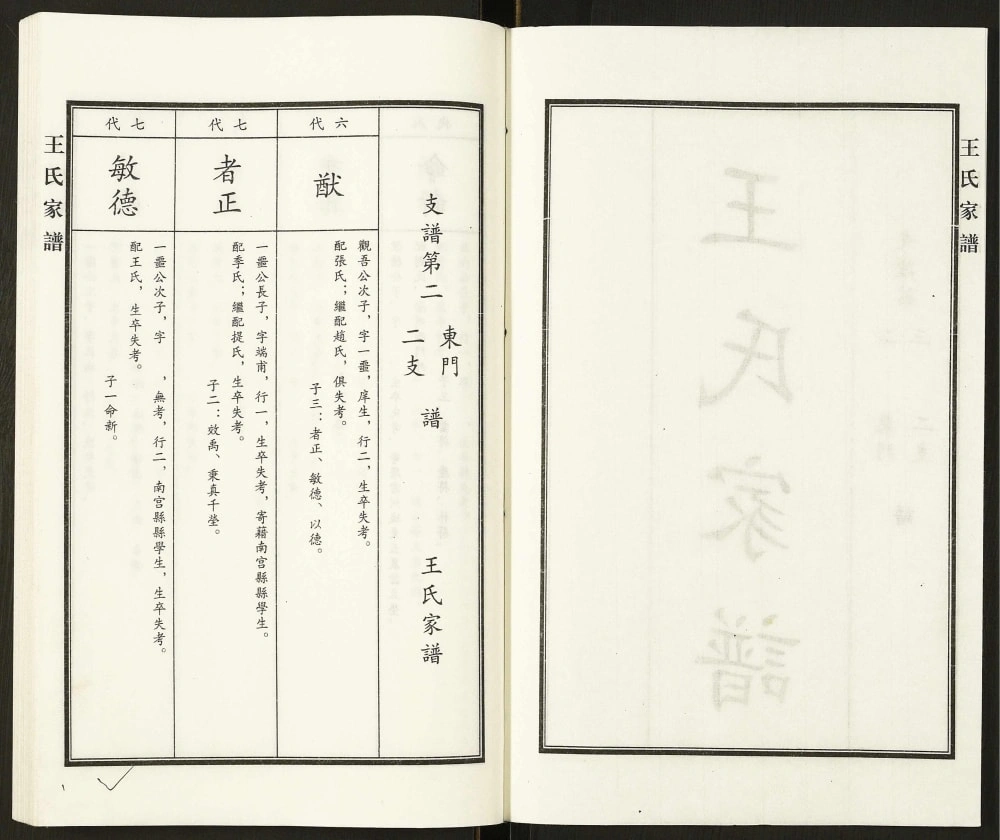 王氏家譜
王氏家譜
支譜第二 東門二支 譜 王氏家譜
六代
猷
觀吾公次子，字一噩，庠生，行二，生卒失考。
配張氏；繼配趙氏，俱失考。
子三：者正、敏德、以德。
七代
者正
一噩公長子，字端甫，行一，生卒失考，寄藉南宫縣縣學生。
配季氏；繼配提氏，生卒失考。
子二：效禹、秉真千塋。
七代
敏德
一噩公次子，字 ，無考，行二，南宫縣縣學生，生卒失考。
配王氏，生卒失考。
子一命新。
王氏家譜